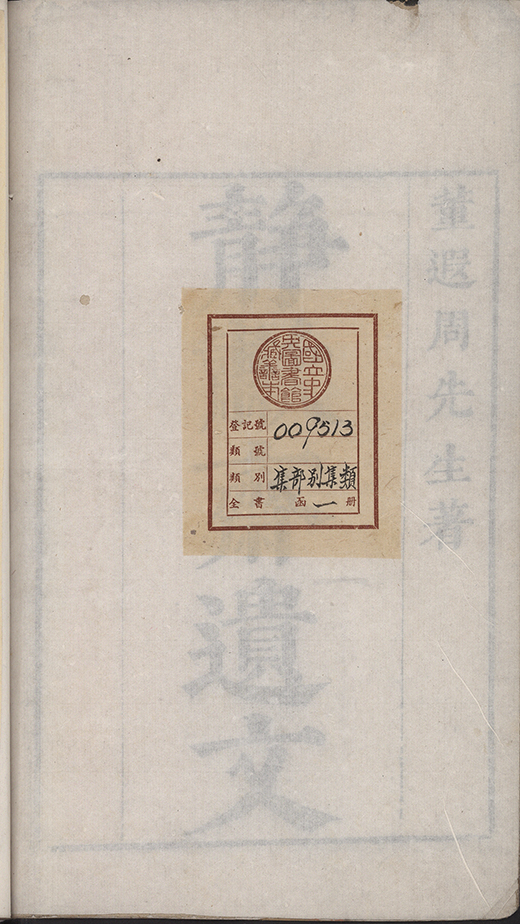 董遐周先生著
靜
遺文
國立中
央圖書館
藏善本
登記號 009513
類號
類別 集部別集類
全書 函一冊